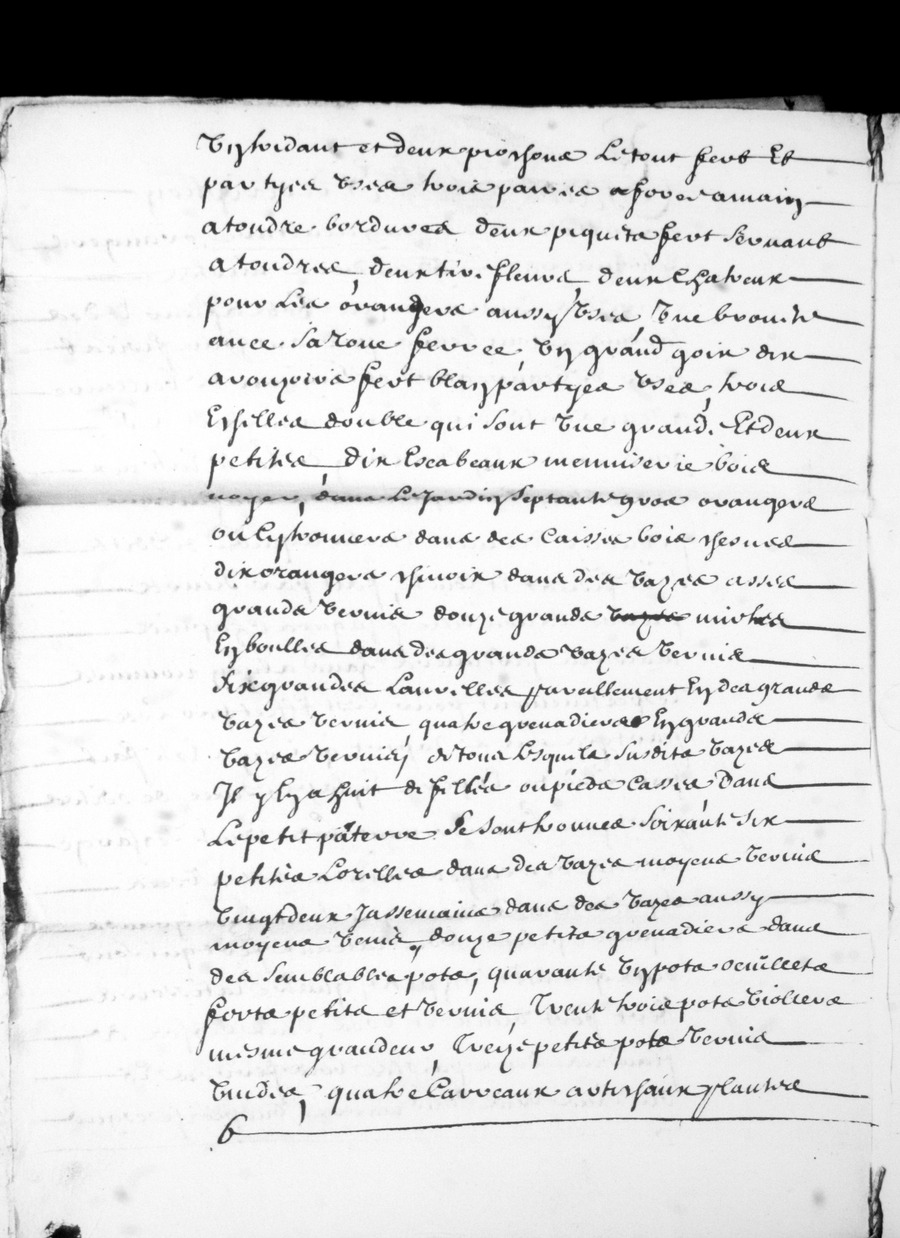 Un tridant et deux piochons le tout fert et
partyes uses trois paires a
atondre bordures deux piquets fert servant
atondres, deux tire fleurs, deux
pour les orangers aussy uses, une brouitte
avec sa roue ferree, un grand goix dix
arouzoirs fert blan partyes uses, trois
Echelles double qui sont une grande Et deux
petites dix Escabeaux mennuserie bois
noyer, dans le Jardin septante gros orangers
ou Cytronniers dans des Caisses bois chesnes
dix orangers chinoix dans des vazes asses
grands vernis douze grands vazes mirthes
En boulles dans des grands vazes vernis
Six grandes Laurelles pareillement En des grands
vazes vernis quatre grenadiers En grands
vazes vernis, de tous lesquils susdits vazes
Il y En a huit de filles ou pieds Casses Dans
Le petit paterre se sont trouves soixante six
petites Lorelles dans des vazes moyens vernis
vingt deux Jassemains dans des vazes aussy
moyens vernis, douze petits grenadiers dans
des semblables pots, quarante un pots oeuillets
forts petits et vernis, Trente trois pots violiers
mesme grandeur, Treize petits pots vernis
vuides, quatre Carreaux artichaux plantes
6